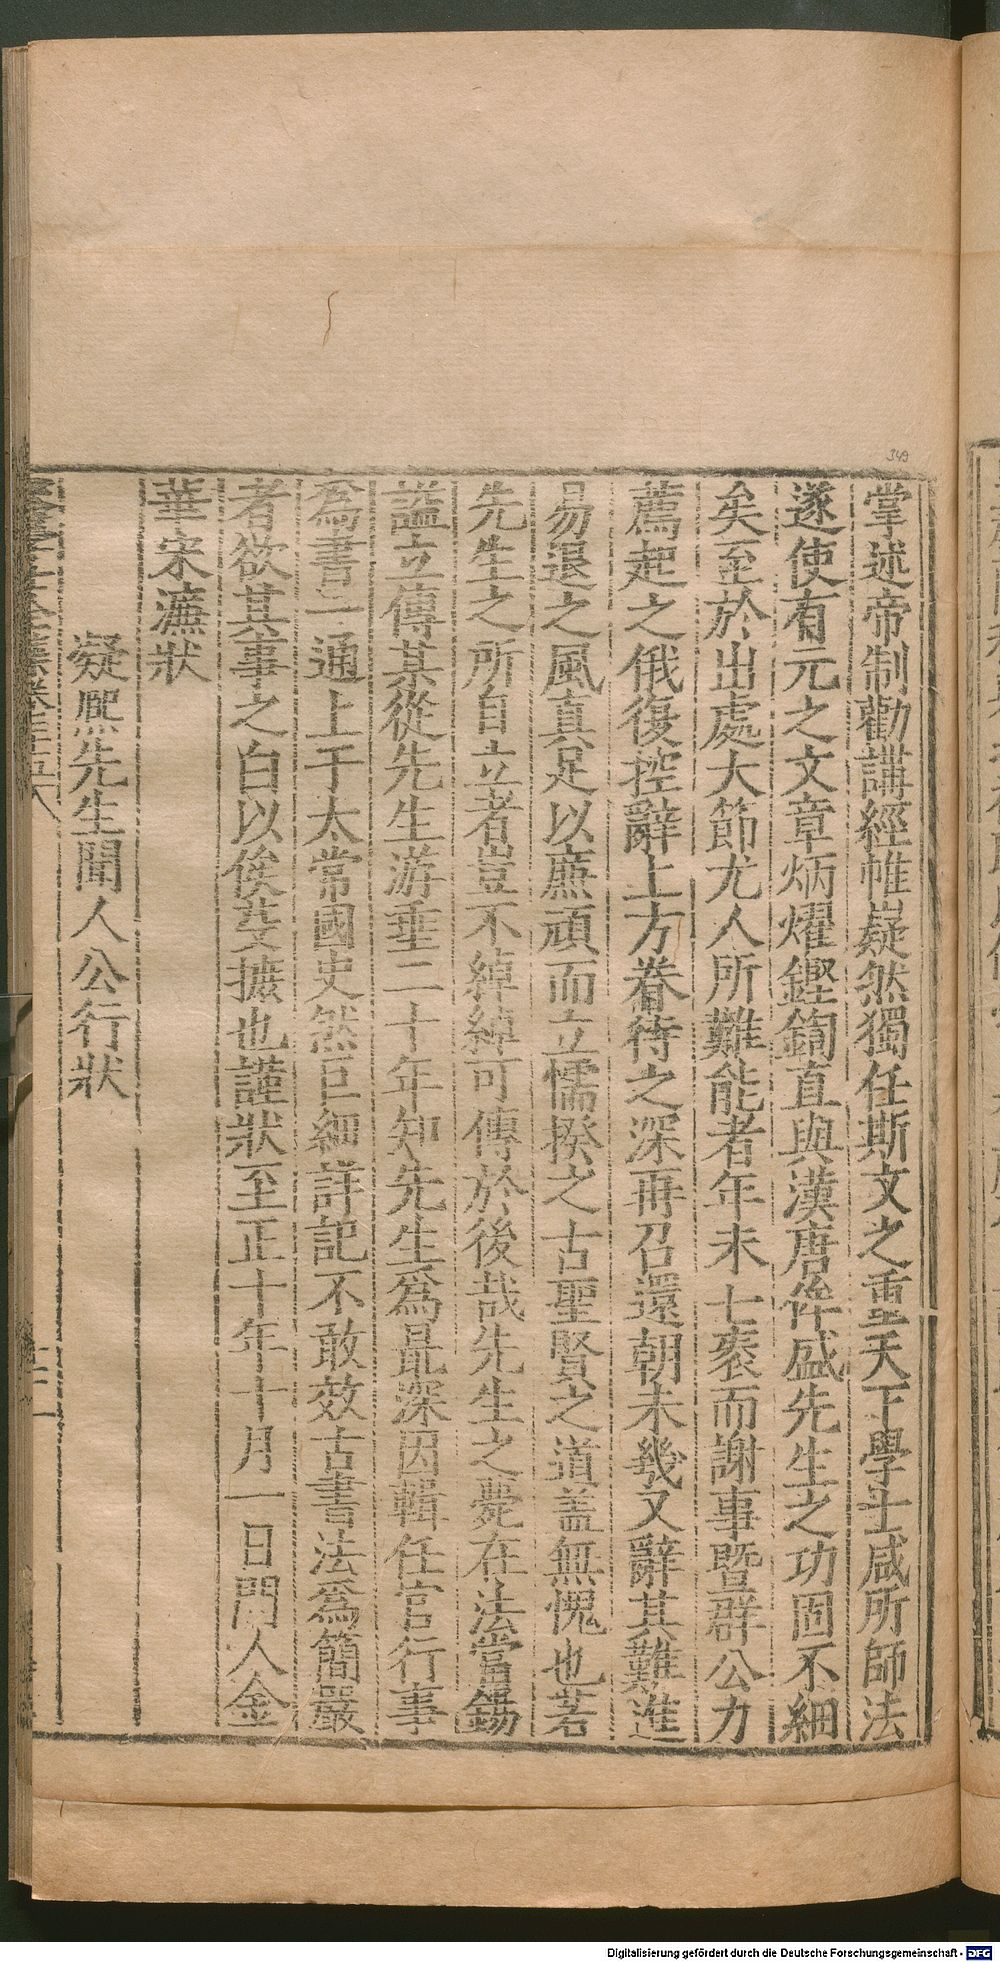 掌述帝制勸講經帷嶷然獨任斯文之重天下學士咸所師法
遂使有元之文章炳燿鏗鍧直與漢唐侔盛先生之功固不細
矣至於出處大節尤人所難能者年未七袠而謝事暨群公力
薦起之俄復控辭上方眷待之深再召還朝未幾又辭其難進
易退之風真足以廉頑而立懦揆之古聖賢之道盖無愧也若
先生之所自立者豈不綽綽可傳於後哉先生之薨在法當錫
謚立傳某從先生游垂二十年知先生爲最深因輯任官行事
爲書二通上于太常國史然巨細詳記不敢效古書法爲簡嚴
者欲其事之白以俟芟摭也謹狀至正十年十月一日門人金
華宋濂狀
凝熈先生聞人公行狀
349
Digitalisierung gefördert durch die Deutsche Forschungsgemeinschaft - DFG